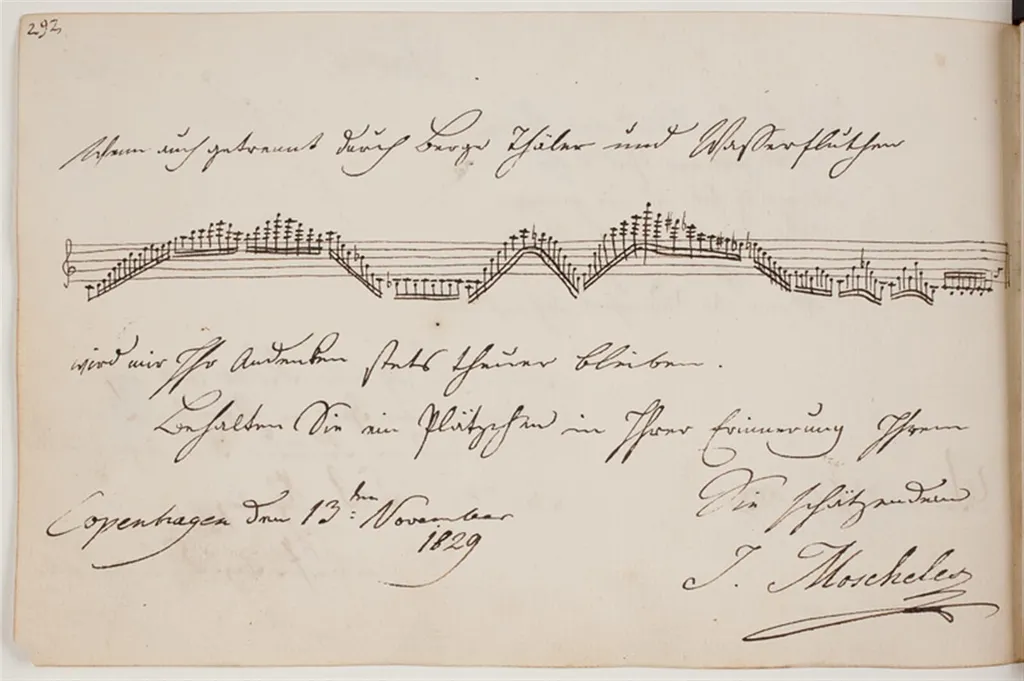 292
Wenn auch getrennt durch Berge Thäler und Wasserfluthen
wird mir Ihr Andenken stets theuer bleiben.
Behalten Sie ein Plätzchen in Ihrer Erinnerung Ihrem
Sie schätzendem
Copenhagen den 13ten November
1829
J. Moscheles